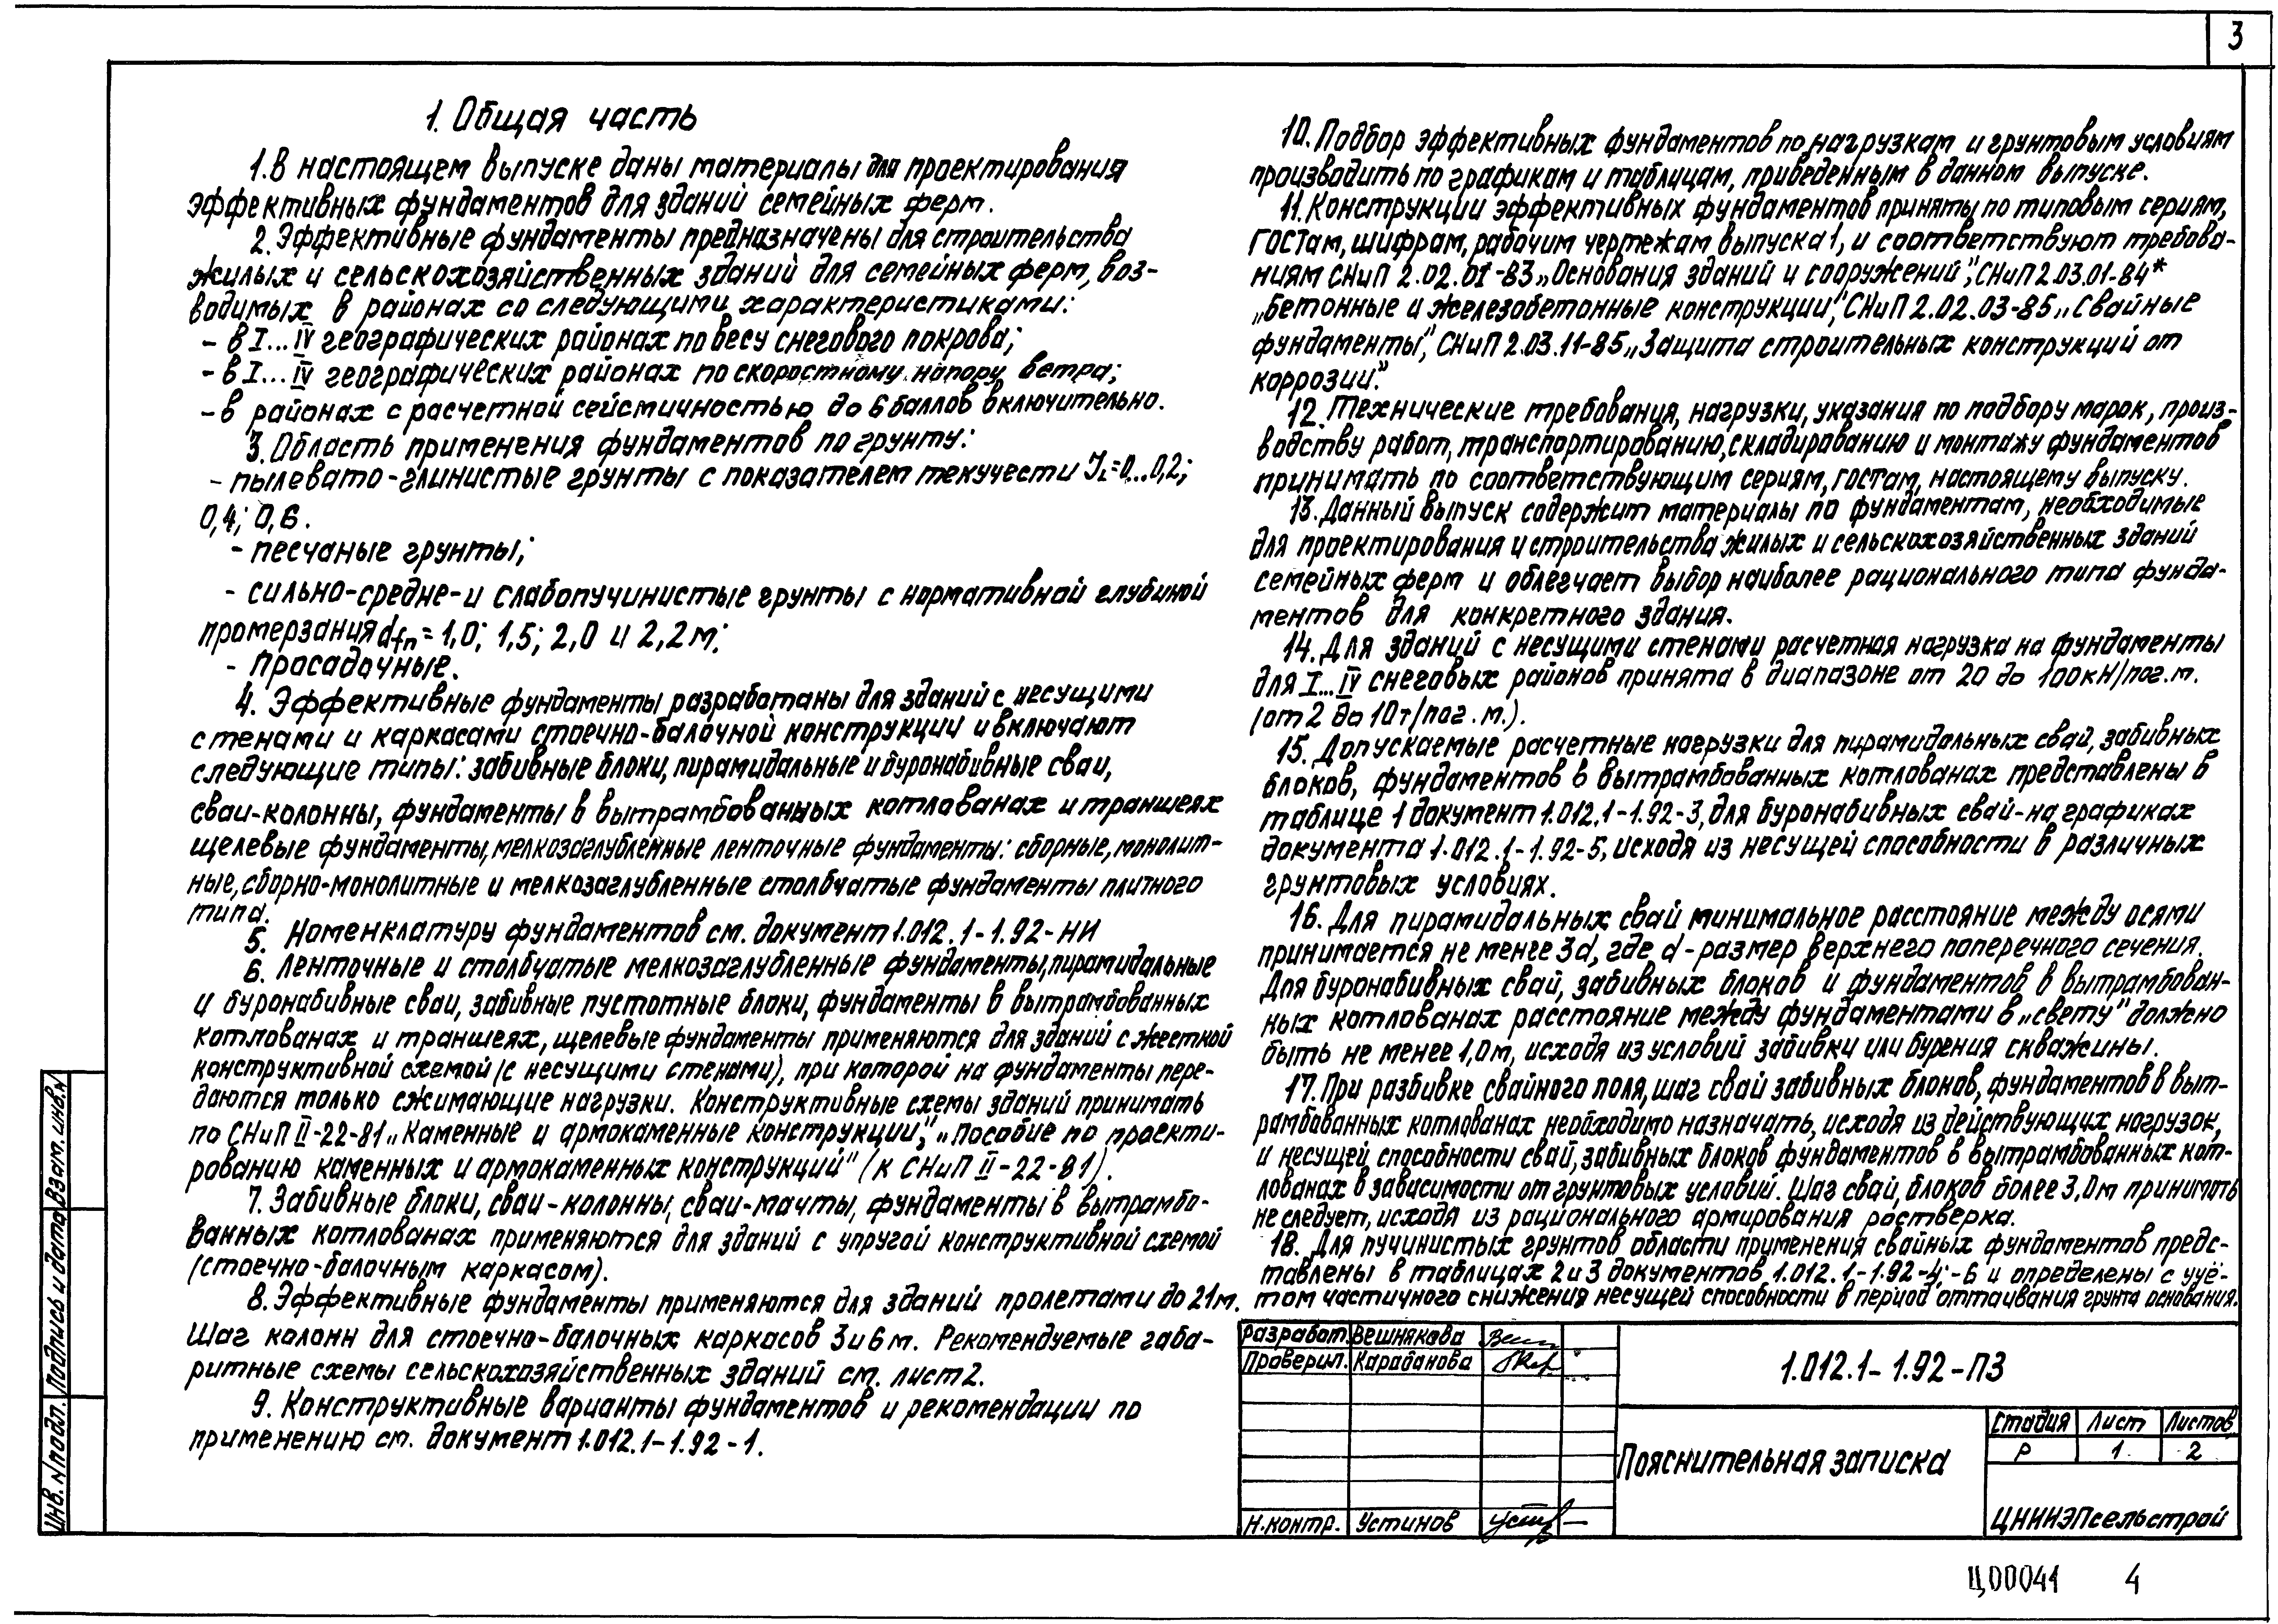 3
1. Общая часть
1. В настоящем выпуске даны материалы для проектирования
эффективных фундаментов для зданий семейных ферм.
2. Эффективные фундаменты предназначены для строительства
жилых и сельскохозяйственных зданий для семейных ферм, воз-
водимых в районах со следующими характеристиками:
- в I... IV географических районах по весу снегового покрова;
- в I... IV географических районах по скоростному напору ветра;
- в районах с расчетной сейсмичностью до 6 баллов включительно.
3. Область применения фундаментов по грунту:
- пылевато-глинистые грунты с показателем текучести JL=0...0,2;
0,4; 0,6.
- песчаные грунты;
- сильно-средне-и слабопучинистые грунты с нормативной глубиной
промерзания dfn = 1,0; 1,5; 2,0 и 2,2 м;
- просадочные.
4. Эффективные фундаменты разработаны для зданий с несущими
стенами и каркасами стоечно-балочной конструкции и включают
следующие типы: забивные блоки, пирамидальные и буронабивные сваи,
сваи-колонны, фундаменты в вытрамбованных котлованах и траншеях
щелевые фундаменты, мелкозаглубленные ленточные фундаменты: сборные, монолит-
ные, сборно-монолитные и мелкозаглубленные столбчатые фундаменты плитного
типа.
5. Номенклатуру фундаментов см. документ 1.012.1-1.92-НИ
6. Ленточные и столбчатые мелкозаглубленные фундаменты, пирамидальные
и буронабивные сваи, забивные пустотные блоки, фундаменты в вытрамбованных
котлованах и траншеях, щелевые фундаменты применяются для зданий с жесткой
конструктивной схемой (с несущими стенами), при которой на фундаменты пере-
даются только сжимающие нагрузки. Конструктивные схемы зданий принимать
по СНиП II-22-81 „Каменные и армокаменные конструкции", „Пособие по проекти-
рованию каменных и армокаменных конструкций" (к СНиП II-22-81).
7. Забивные блоки, сваи-колонны, сваи-мачты, фундаменты в вытрамбо-
ванных котлованах применяются для зданий с упругой конструктивной схемой
(стоечно-балочным каркасом).
8. Эффективные фундаменты применяются для зданий пролетами до 21м.
Шаг колонн для стоечно-балочных каркасов 3 и 6 м. Рекомендуемые габа-
ритные схемы сельскохозяйственных зданий см. лист 2.
9. Конструктивные варианты фундаментов и рекомендации по
применению см. документ 1.012.1-1.92-1.
10. Подбор эффективных фундаментов по нагрузкам и грунтовым условиям
производить по графикам и таблицам, приведенным в данном выпуске.
11. Конструкции эффективных фундаментов приняты по типовым сериям,
ГОСТам, шифрам, рабочим чертежам выпуска 1, и соответствуют требова-
ниям СНиП 2.02.01-83 „Основания зданий и сооружений", СНиП 2.03.01-84*
„Бетонные и железобетонные конструкции", СНиП 2.02.03-85 „Свайные
фундаменты", СНиП 2.03.11-85 „Защита строительных конструкций от
коррозии."
12. Технические требования, нагрузки, указания по подбору марок, произ-
водству работ, транспортированию, складированию и монтажу фундаментов
принимать по соответствующим сериям, ГОСТам, настоящему выпуску.
13. Данный выпуск содержит материалы по фундаментам, необходимые
для проектирования и строительства жилых и сельскохозяйственных зданий
семейных ферм и облегчает выбор наиболее рационального типа фунда-
ментов для конкретного здания.
14. Для зданий с несущими стенами расчетная нагрузка на фундаменты
для I... IV снеговых районов принята в диапазоне от 20 до 100кН/пог.м.
(от 2 до 10т/пог.м.).
15. Допускаемые расчетные нагрузки для пирамидальных свай, забивных
блоков, фундаментов в вытрамбованных котлованах представлены в
таблице 1 документ 1.012.1-1.92-3, для буронабивных свай-на графиках
документа 1.012.1-1.92-5, исходя из несущей способности в различных
грунтовых условиях.
16. Для пирамидальных свай минимальное расстояние между осями
принимается не менее 3d, где d-размер верхнего поперечного сечения.
Для буронабивных свай, забивных блоков и фундаментов в вытрамбован-
ных котлованах расстояние между фундаментами в „свету" должно
быть не менее 1,0м, исходя из условий забивки или бурения скважины.
17. При разбивке свайного поля, шаг свай забивных блоков, фундаментов в выт-
рамбованных котлованах необходимо назначать, исходя из действующих нагрузок,
и несущей способности свай, забивных блоков фундаментов в вытрамбованных кот-
лованах в зависимости от грунтовых условий. Шаг свай, блоков более 3,0м принимать
не следует, исходя из рационального армирования ростверка.
18. Для пучинистых грунтов области применения свайных фундаментов предс-
тавлены в таблицах 2 и 3 документов 1.012.1-1.92-4; -6 и определены с учё-
том частичного снижения несущей способности в период оттаивания грунта основания.
Разработ. Вешнякова
Проверил. Карабанова
Н.контр. Устинов
1.012.1-1.92-ПЗ
Пояснительная записка
Стадия Лист Листов
Р 1 2
ЦНИИЭПсельстрой
Инв. №подл. Подпись и дата Взам. инв.№
Ц00041 4